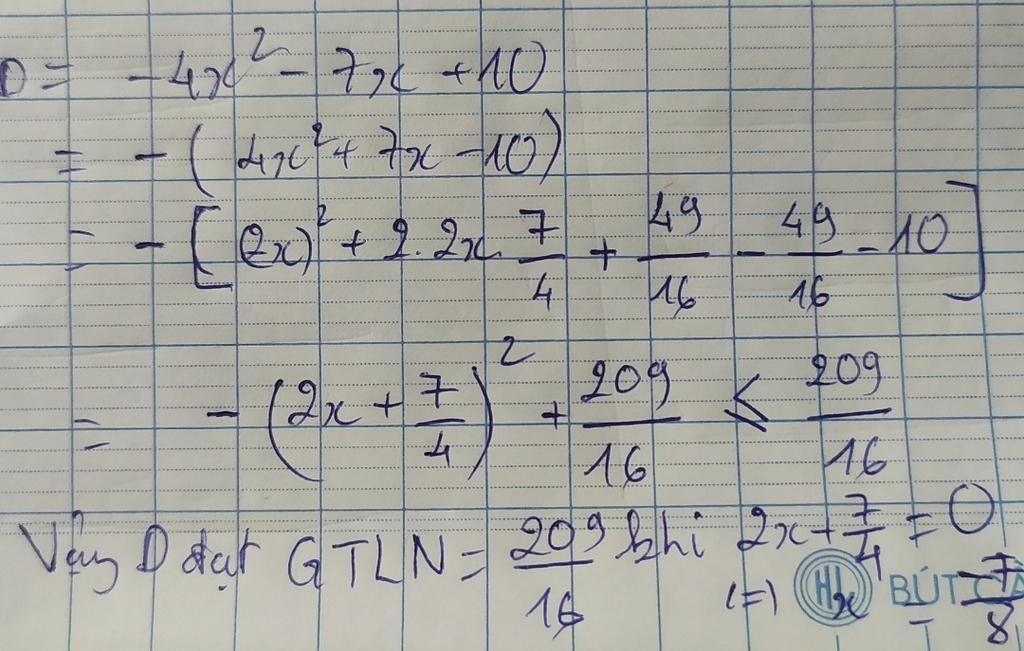 D = -4x² - 7x + 10
= - (4x² + 7x - 10)
= - [(2x)² + 2.2x.7/4 + 49/16 - 49/16 - 10]
= - (2x + 7/4)² + 209/16 ≤ 209/16
Vậy D đạt GTLN = 209/16 khi 2x + 7/4 = 0
(=) x = -7/8
BÚT